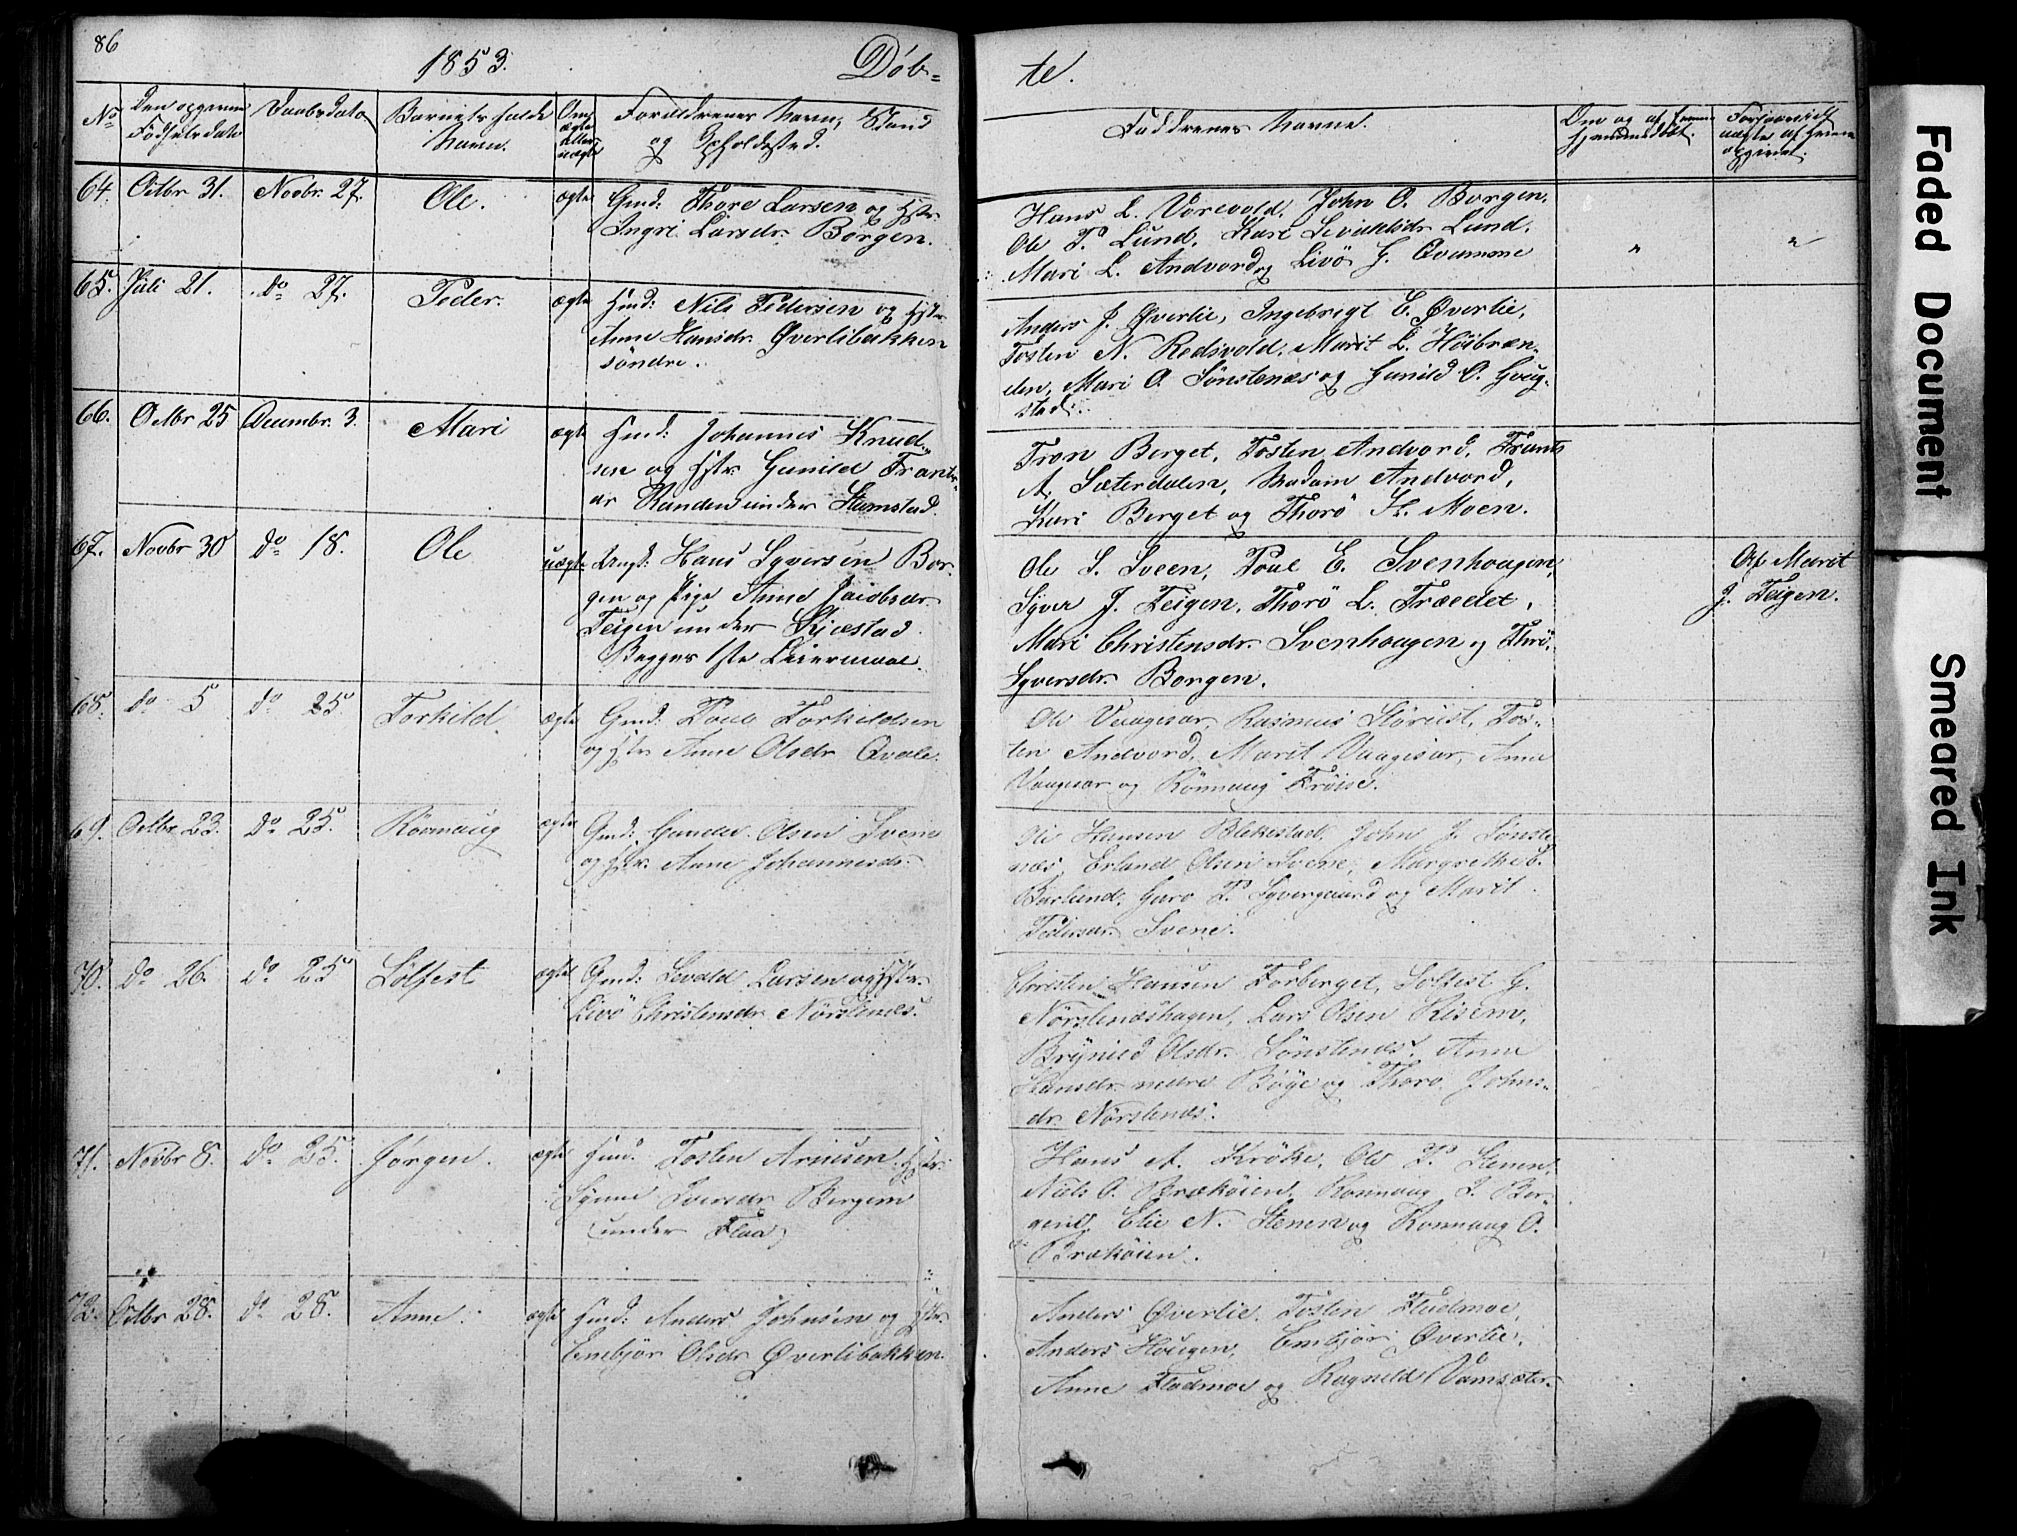 86
1853.
Døb=
te.
No
Den opgivne
Fødselsdato
Daabsdato
Barnets fulde
Navn.
Om
ægte
eller
uægte
Forældrenes Navn, Stand
og Opholdssted.
Faddrenes Navne.
Om og af hvem
hjemmedøbt.
af hvem
64. Octbr 31. Novbr. 27. Ole. ægte Gmd: Thore Larsen og Hstr.
Ingri Larsdr. Borgen.
Hans L. Vorevold, John O. Borgen,
Ole P. Lund, Kari Sivaldsdr Lund,
Mari L. Andvord og Livö G.
65. Juli 21. do 27. Peder. ægte Hmd: Nils Pedersen og Hstr
Anne Hansdr. Øverlibakken
søndre.
Anders J. Øverlie, Ingebrigt E. Øverlie,
Tosten N. Redsvold, Marit L. Høibræn-
den, Mari O. Sønstenæs og Gunild O. Goug-
stad.
66. Octbr 25 Decembr. 3. Mari ægte Hmd: Johannes Knud-
sen og Hstr. Gunild Frants-
dr Randen under Stamstad.
Tron Berget, Tosten Andvord, Frants
A. Sæterdalen, Madam Andvord,
Kari Berget og Thorö H. Moen.
67. Novbr 30 do 18. Ole uægte Ungk: Hans Syversen Bor-
gen og Pige Anne Jacobsdr.
Teigen under Skjæstad.
Begges 1ste Leiermaal.
Ole S. Sveen, Poul E. Svenhaugen,
Syver J. Teigen, Thorö L. Træedet,
Mari Christensdr. Svenhaugen og Thrö.
Syversdr. Borgen.
Af Marit
J. Teigen.
68. do 5 do 25. Torkild. ægte Gmd: Poul Torkildsen
og Hstr Anne Olsdr Qvale.
Ole Vaagesar, Rasmus Störust, Tos-
ten Andvord, Marit Vaagesar, Anne
Vaagesar og Rönnaug Fröise.
69. Octbr 23. do 25. Rönnaug ægte Gmd: Gunder Olsen Svene
og Hstr. Anne Johannesdr.
Ole Hansen Blekestad, John J. Sönste-
næs, Erland Olsen Svene, Margrethe E.
Barlund, Guro P. Syvergaard og Marit
Pedersdr. Svene.
70. do 26. do 25 Solfest ægte Gmd: Sivald Larsen og Hstr.
Livö Christensdr Nörstenæs.
Christen Hansen Forberget, Solfest G.
Nörstenæshagen, Lars Olsen Risem,
Brynild Olsdr. Sönstenæs, Anne
Hansdr. nedre Böye og Thoro Johns-
dr Nörstenæs.
71. Novbr 8. do 25. Jörgen. ægte Hmd: Tosten Arnesen Hstr:
Synne Iversdr Bergem
(under Flaa)
Hans A. Kröke, Ole P. Stenen,
Niels O. Bræköien, Ronnaug I. Ber-
gem, Elie N. Stenen og Ronnaug O.
Bræköien.
72. Octbr 28. do 28. Anne. ægte Hmd: Anders Johnsen og Hstr.
Embjör Olsdr Øverlibakken.
Anders Øverlie, Tosten Fladmoe,
Anders Hougen, Embjör Øverlie,
Anne Fladmoe og Ragnild Vamsæter.
Faded Document
Smeared Ink